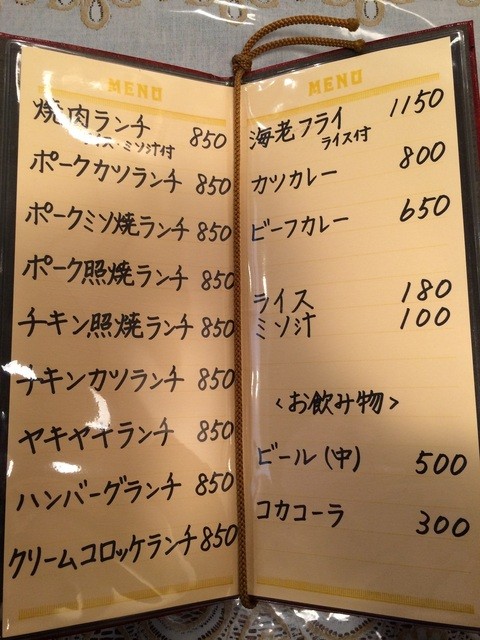 MENU
焼肉ランチ 850
ライス・ミソ汁付
ポークカツランチ 850
ポークミソ焼ランチ 850
ポーク照焼ランチ 850
チキン照焼ランチ 850
チキンカツランチ 850
ヤキヤイランチ 850
ハンバーグランチ 850
クリームコロッケランチ 850
MENU
海老フライ 1150
ライス付
カツカレー 800
ビーフカレー 650
ライス 180
ミソ汁 100
<お飲み物>
ビール(中) 500
コカコーラ 300